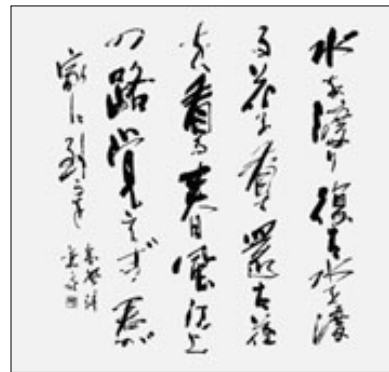 水を渡り復た水を渡
る花を看還た花
を看る春風江上
の路覚えず君が
家に到る
高啓詩